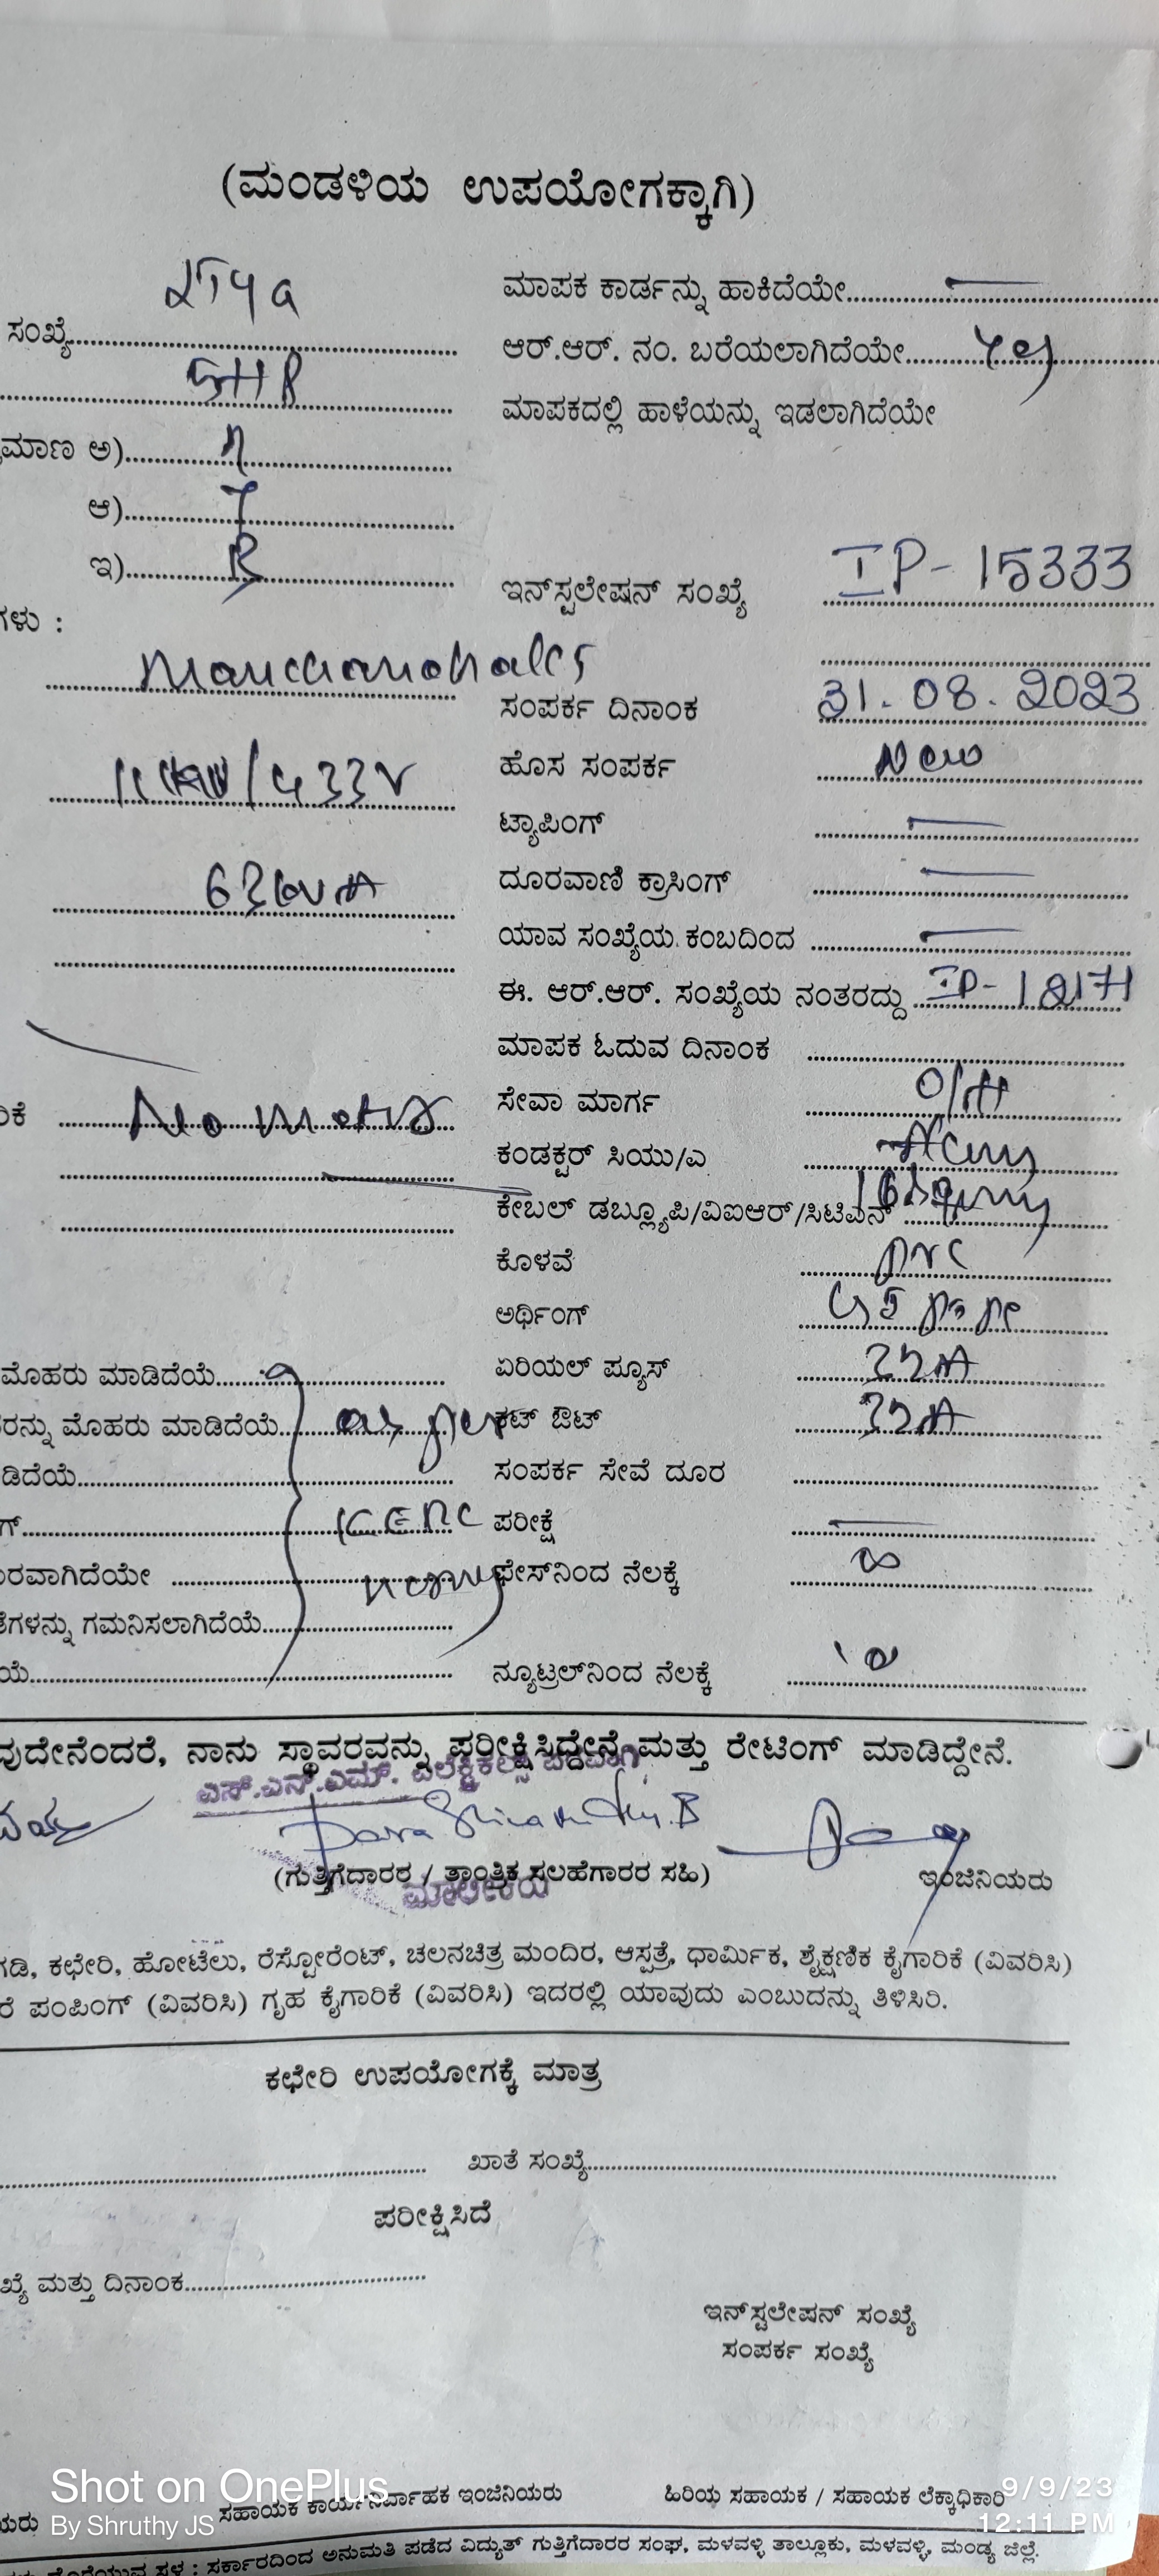 (ಮಂಡಳಿಯ ಉಪಯೋಗಕ್ಕಾಗಿ)
ಮಾಪಕ ಕಾರ್ಡನ್ನು ಹಾಕಿದೆಯೇ
ಸಂಖ್ಯೆ
ಆರ್.ಆರ್. ನಂ. ಬರೆಯಲಾಗಿದೆಯೇ yes
5HP
ಮಾಪಕದಲ್ಲಿ ಹಾಳೆಯನ್ನು ಇಡಲಾಗಿದೆಯೇ
ಮಾಣ ಅ)
ಆ) Y
ಇ) B
ಇನ್‌ಸ್ಟಲೇಷನ್ ಸಂಖ್ಯೆ IP-15333
ಗಳು :
ಸಂಪರ್ಕ ದಿನಾಂಕ 31.08.2023
/433V ಹೊಸ ಸಂಪರ್ಕ New
ಟ್ಯಾಪಿಂಗ್
63KVA ದೂರವಾಣಿ ಕ್ರಾಸಿಂಗ್
ಯಾವ ಸಂಖ್ಯೆಯ ಕಂಬದಿಂದ
ಈ. ಆರ್.ಆರ್. ಸಂಖ್ಯೆಯ ನಂತರದ್ದು IP-
ಮಾಪಕ ಓದುವ ದಿನಾಂಕ
ಿಕೆ No meter ಸೇವಾ ಮಾರ್ಗ O/H
ಕಂಡಕ್ಟರ್ ಸಿಯು/ಎ
ಕೇಬಲ್ ಡಬ್ಲ್ಯೂಪಿ/ವಿಐಆರ್/ಸಿಟಿಎನ್
ಕೊಳವೆ PVC
ಅರ್ಥಿಂಗ್ GI Pipe
ಮೊಹರು ಮಾಡಿದೆಯೆ ಏರಿಯಲ್ ಪ್ಯೂಸ್ 32A
ರನ್ನು ಮೊಹರು ಮಾಡಿದೆಯೆ as per ಕಟ್ ಔಟ್ 32A
ಡಿದೆಯೆ ಸಂಪರ್ಕ ಸೇವೆ ದೂರ
ಗ್ KERC ಪರೀಕ್ಷೆ
ರವಾಗಿದೆಯೇ norms ಫೇಸ್‌ನಿಂದ ನೆಲಕ್ಕೆ ∞
ತೆಗಳನ್ನು ಗಮನಿಸಲಾಗಿದೆಯೆ
ಯೆ ನ್ಯೂಟ್ರಲ್‌ನಿಂದ ನೆಲಕ್ಕೆ
ವುದೇನೆಂದರೆ, ನಾನು ಸ್ಥಾವರವನ್ನು ಪರೀಕ್ಷಿಸಿದ್ದೇನೆ ಮತ್ತು ರೇಟಿಂಗ್ ಮಾಡಿದ್ದೇನೆ.
ಎಸ್.ಎನ್.ಎಮ್. ಎಲೆಕ್ಟ್ರಿಕಲ್ಸ್ ಪರವಾಗಿ
(ಗುತ್ತಿಗೆದಾರರ / ತಾಂತ್ರಿಕ ಸಲಹೆಗಾರರ ಸಹಿ) ಇಂಜಿನಿಯರು
ಮಾಲೀಕರು
ಗಡಿ, ಕಛೇರಿ, ಹೋಟೆಲು, ರೆಸ್ಟೋರೆಂಟ್, ಚಲನಚಿತ್ರ ಮಂದಿರ, ಆಸ್ಪತ್ರೆ, ಧಾರ್ಮಿಕ, ಶೈಕ್ಷಣಿಕ ಕೈಗಾರಿಕೆ (ವಿವರಿಸಿ)
ರೆ ಪಂಪಿಂಗ್ (ವಿವರಿಸಿ) ಗೃಹ ಕೈಗಾರಿಕೆ (ವಿವರಿಸಿ) ಇದರಲ್ಲಿ ಯಾವುದು ಎಂಬುದನ್ನು ತಿಳಿಸಿರಿ.
ಕಛೇರಿ ಉಪಯೋಗಕ್ಕೆ ಮಾತ್ರ
ಖಾತೆ ಸಂಖ್ಯೆ
ಪರೀಕ್ಷಿಸಿದೆ
ಖ್ಯೆ ಮತ್ತು ದಿನಾಂಕ
ಇನ್‌ಸ್ಟಲೇಷನ್ ಸಂಖ್ಯೆ
ಸಂಪರ್ಕ ಸಂಖ್ಯೆ
Shot on OnePlus
By Shruthy JS
9/9/23
12:11 PM
ಯರು ಸಹಾಯಕ ಕಾರ್ಯನಿರ್ವಾಹಕ ಇಂಜಿನಿಯರು ಹಿರಿಯ ಸಹಾಯಕ / ಸಹಾಯಕ ಲೆಕ್ಕಾಧಿಕಾರಿ
ದೊರೆಯುವ ಸ್ಥಳ : ಸರ್ಕಾರದಿಂದ ಅನುಮತಿ ಪಡೆದ ವಿದ್ಯುತ್ ಗುತ್ತಿಗೆದಾರರ ಸಂಘ, ಮಳವಳ್ಳಿ ತಾಲ್ಲೂಕು, ಮಳವಳ್ಳಿ, ಮಂಡ್ಯ ಜಿಲ್ಲೆ.